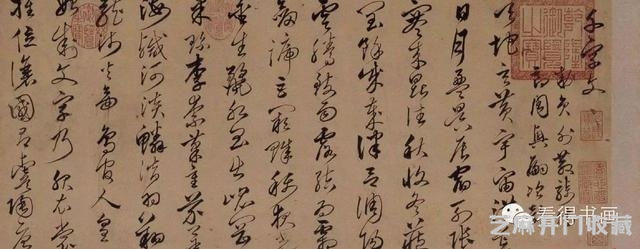 千字文
敕員外散騎
周興嗣次韻
天地玄黃宇宙洪
日月盈昃辰宿列張
寒來暑往秋收冬藏
閏餘成歲律呂調陽
雲騰致雨露結為霜
劍號巨闕珠稱夜光
金生麗水玉出崑岡
果珍李柰菜重芥
海鹹河淡鱗潛羽翔
龍師火帝鳥官人皇
始制文字乃服衣裳
推位讓國有虞陶唐
看得书画
芝麻开门收藏